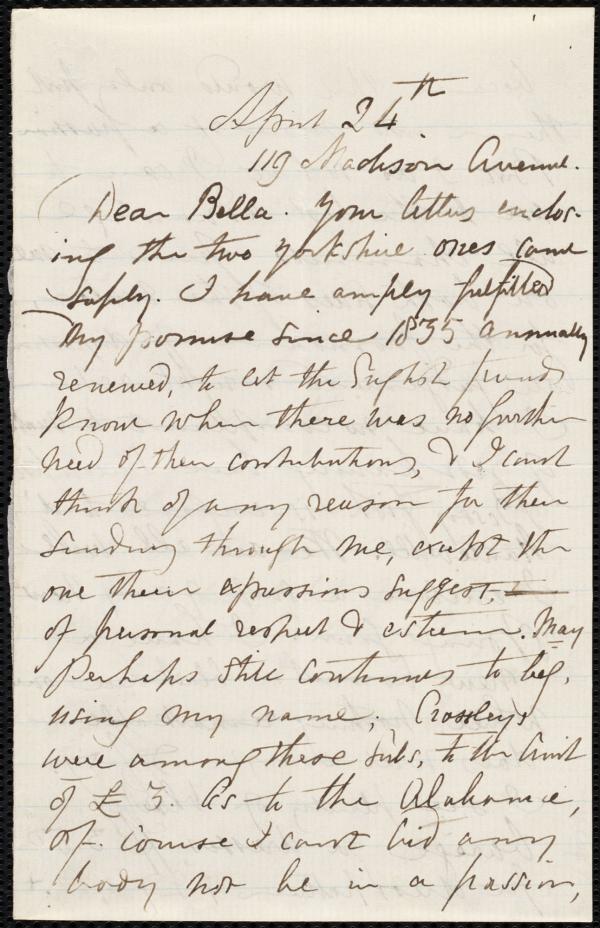 April 24th
119 Madison Avenue.
Dear Bella. Your letters enclos-
ing the two Yorkshire ones came
safely. I have amply fulfilled
my promise since 1835 annually
renewed, to let the English friends
know when there was no further
need of their contributions, & I cant
think of any reason for their
sending through me, except the
one their expressions suggest,
of personal respect & esteem. May
Perhaps still continues to beg,
using my name; Crossleys
were among these subs, to the amt
of £3. As to the Alabama,
of course I cant bid any
body not be in a passion,